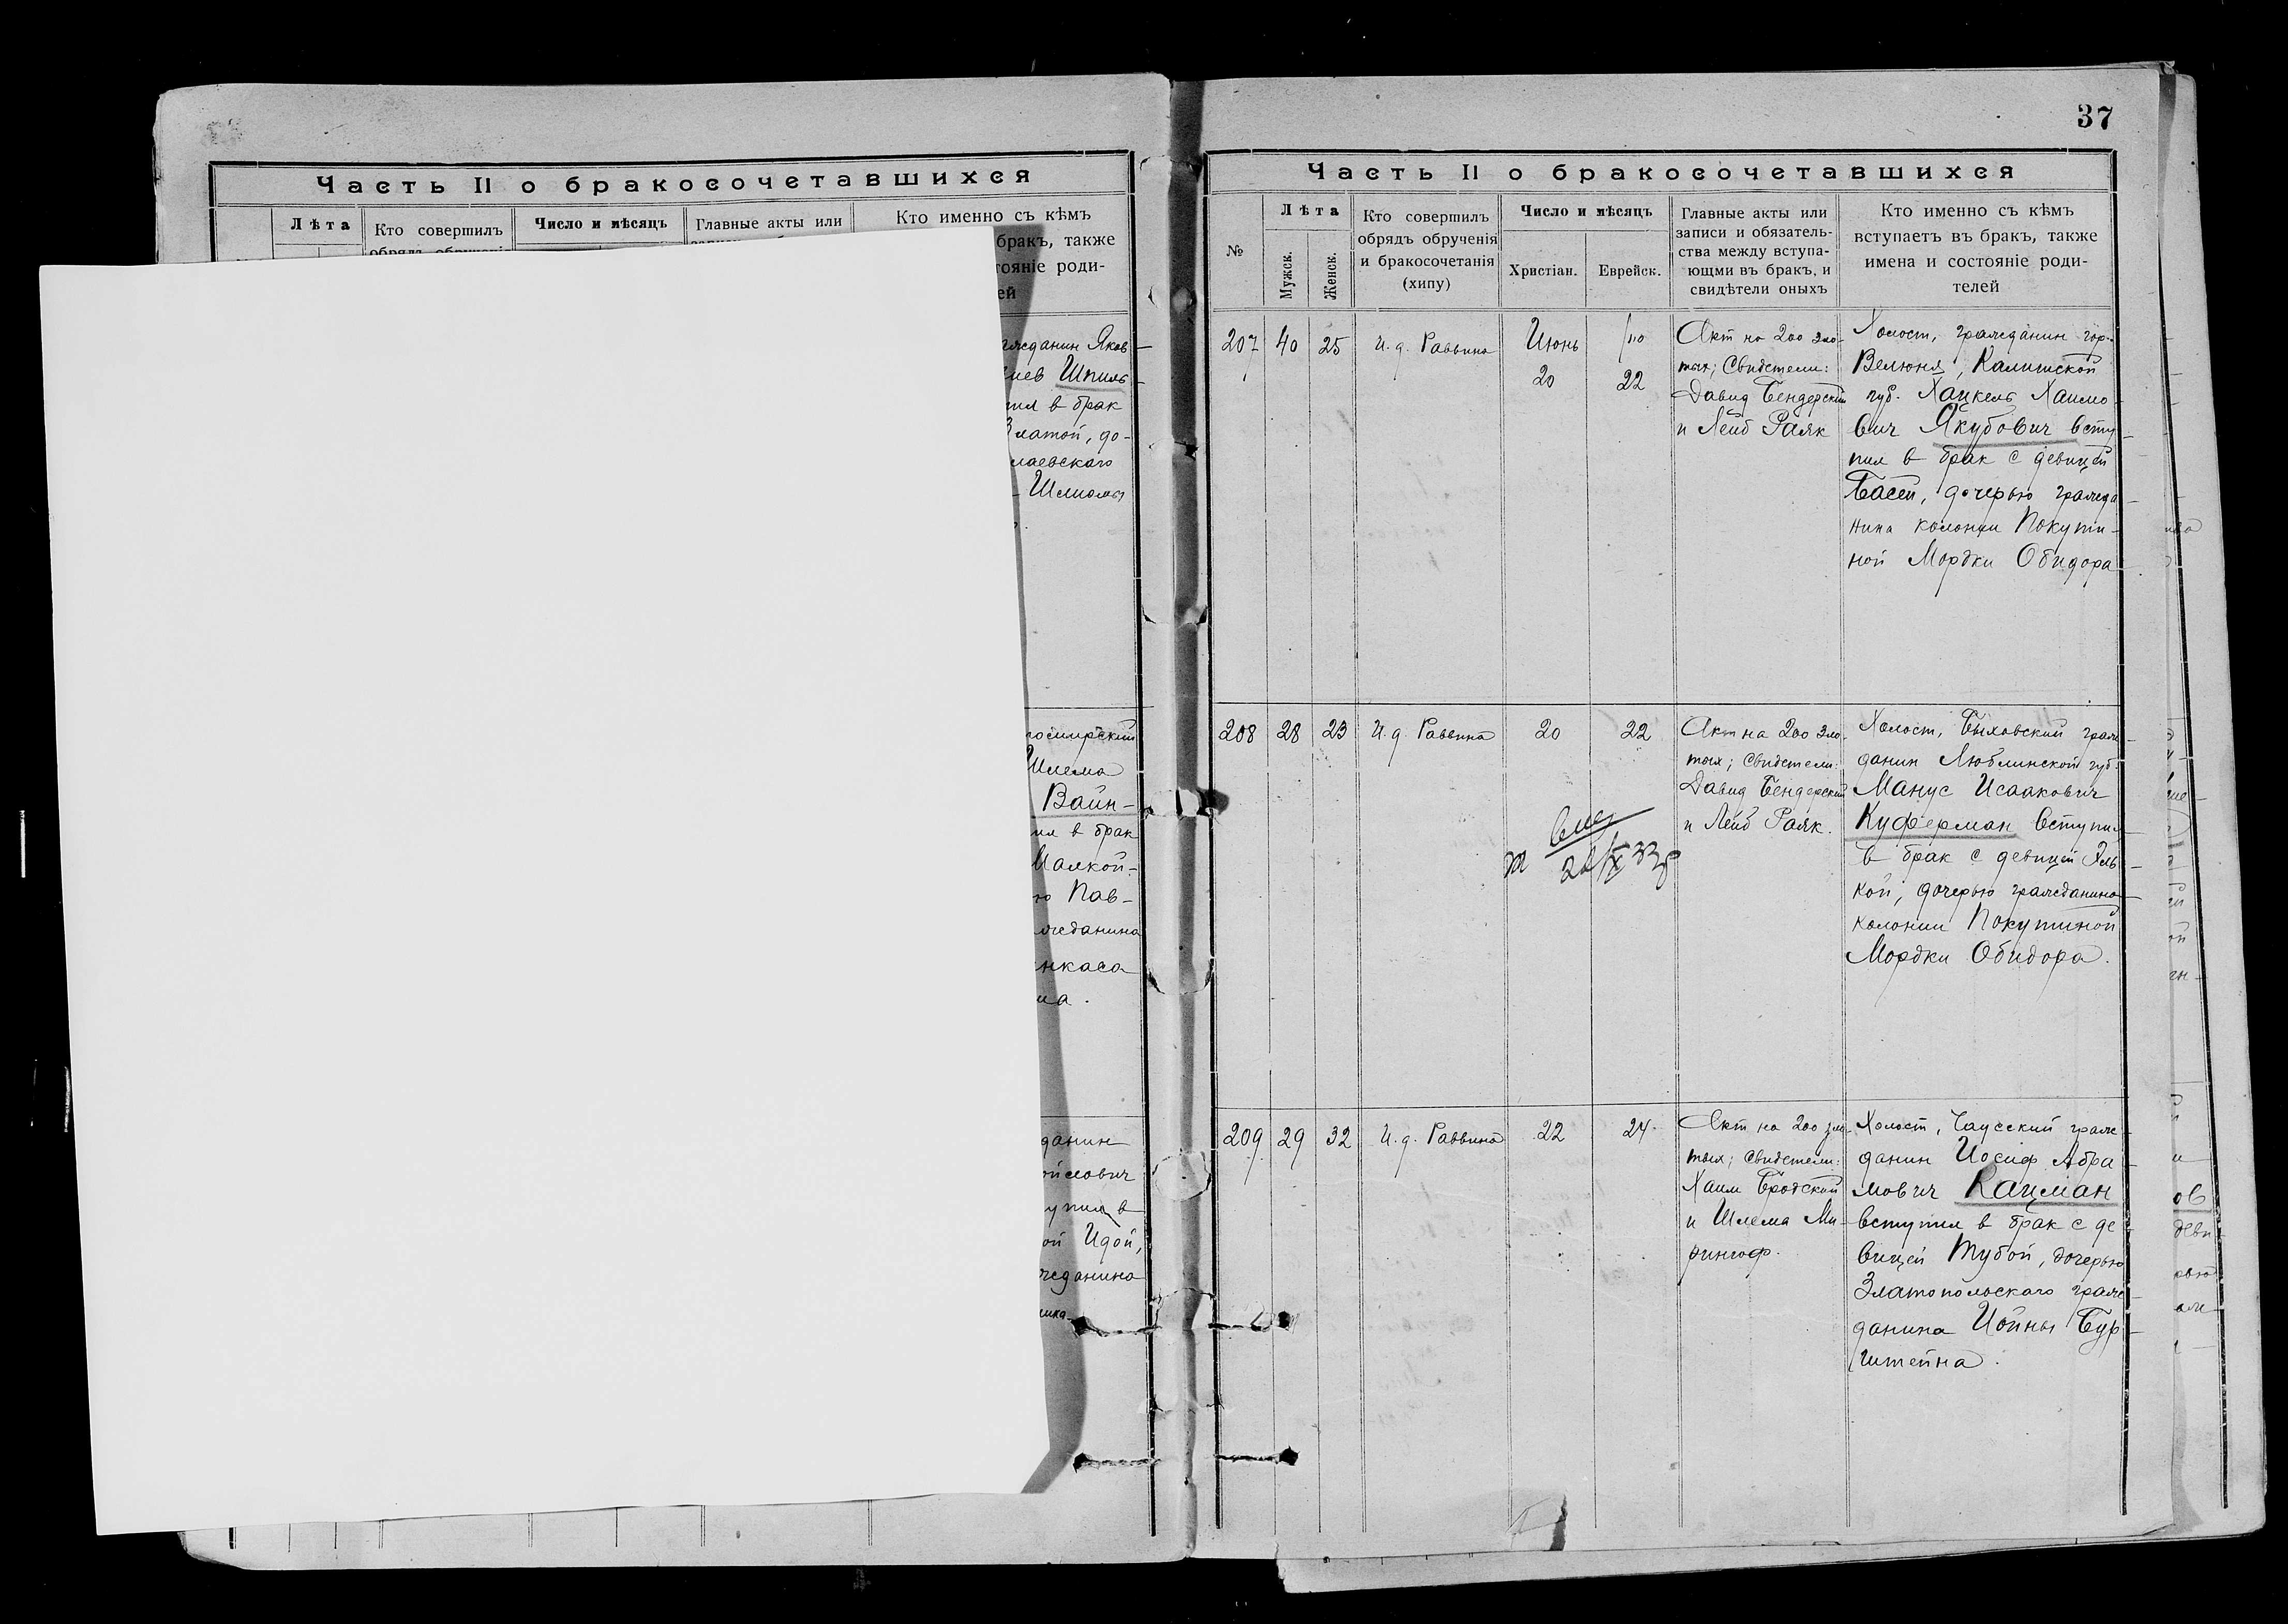 Часть II о бракосочетавшихся
Лѣта
Кто совершилъ
Число и мѣсяцъ
Главные акты или
Кто именно съ кѣмъ
бракъ, также
роди-
Яков
Шпиль
в брак
Златой, до-
Шлиомы
Шлема
Вайн-
в брак
Малкой-
Пав-
в
Идой,
37
Часть II о бракосочетавшихся
№
Лѣта
Мужск.
Женск.
Кто совершилъ
обрядъ обрученія
и бракосочетанія
(хипу)
Число и мѣсяцъ
Христіан.
Еврейск.
Главные акты или
записи и обязатель-
ства между вступа-
ющми въ бракъ, и
свидѣтели оныхъ
Кто именно съ кѣмъ
вступаетъ въ бракъ, также
имена и состояніе роди-
телей
207
40
25
И. д. Раввина
Июнь
20
22
Акт на 200 зло-
тых; Свидетели:
Давид Бендерский
и Лейб Раяк
Холост, гражданин гор.
Велюня, Калишской
губ. Хацкель Хаимо-
вич Якубович всту-
пил в брак с девицей
Басей, дочерью гражда-
нина колонии Покути-
ной Мордки Обидора
208
28
23
И. д. Раввина
20
22
Акт на 200 зло-
тых; Свидетели:
Давид Бендерский
и Лейб Раяк.
Холост, Быховский граж-
данин Люблинской губ.
Манус Исаакович
Куферман вступил
в брак с девицей Эль-
кой, дочерью гражданина
колонии Покутиной
Мордки Обидора.
209
29
32
И. д. Раввина
22
24
Акт на 200 зло-
тых; Свидетели:
Хаим Бродский
и Шлема Ми-
рингоф.
Холост, Чаусский граж-
данин Иосиф Абра-
мович Кацман
вступил в брак с де-
вицей Тубой, дочерью
Златопольского граж-
данина Иойны Бур-
штейна.